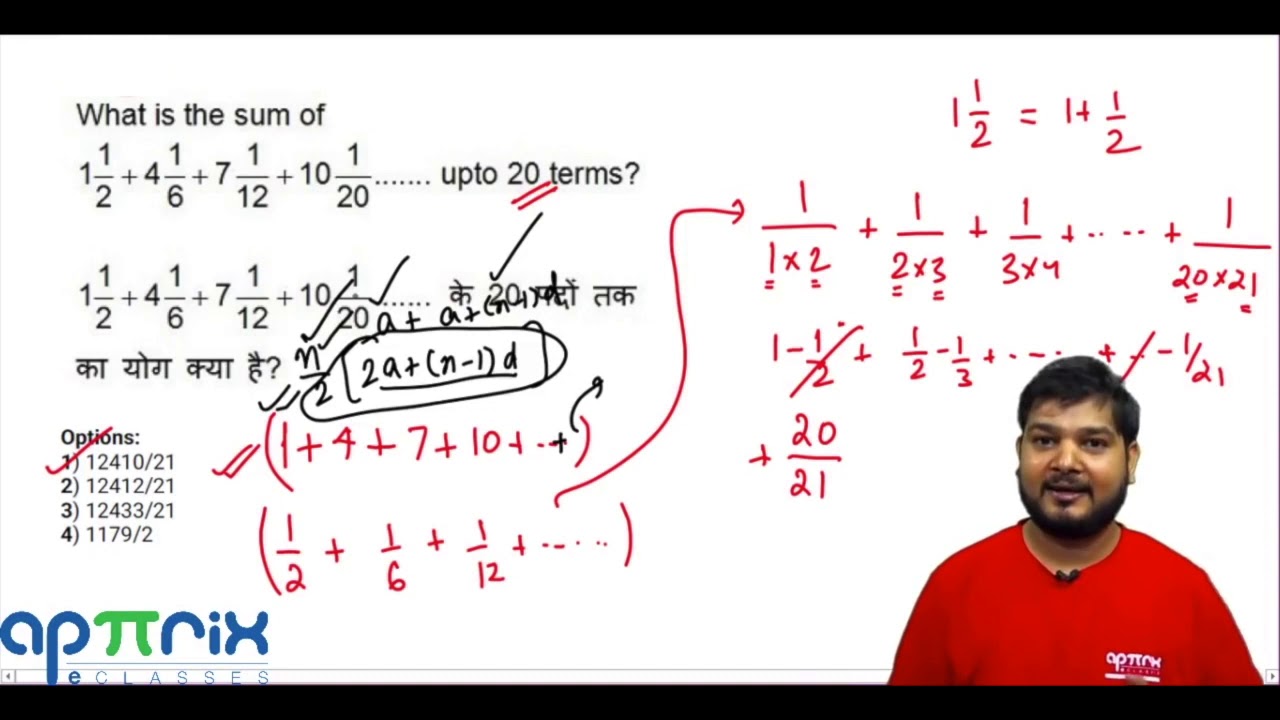 What is the sum of
1 1/2 + 4 1/6 + 7 1/12 + 10 1/20 ....... upto 20 terms?
1 1/2 + 4 1/6 + 7 1/12 + 10 1/20 ....... के 20 पदों तक
का योग क्या है?
a + a+(n-1)d
n/2 [2a+(n-1)d]
(1+4+7+10+...+)
(1/2 + 1/6 + 1/12 + .....)
Options:
1) 12410/21
2) 12412/21
3) 12433/21
4) 1179/2
1 1/2 = 1+ 1/2
1/(1×2) + 1/(2×3) + 1/(3×4) + ..... + 1/(20×21)
1-1/2 + 1/2-1/3 + ..... + .. -1/21
+ 20/21
apπrix
e CLASSES
apπrix